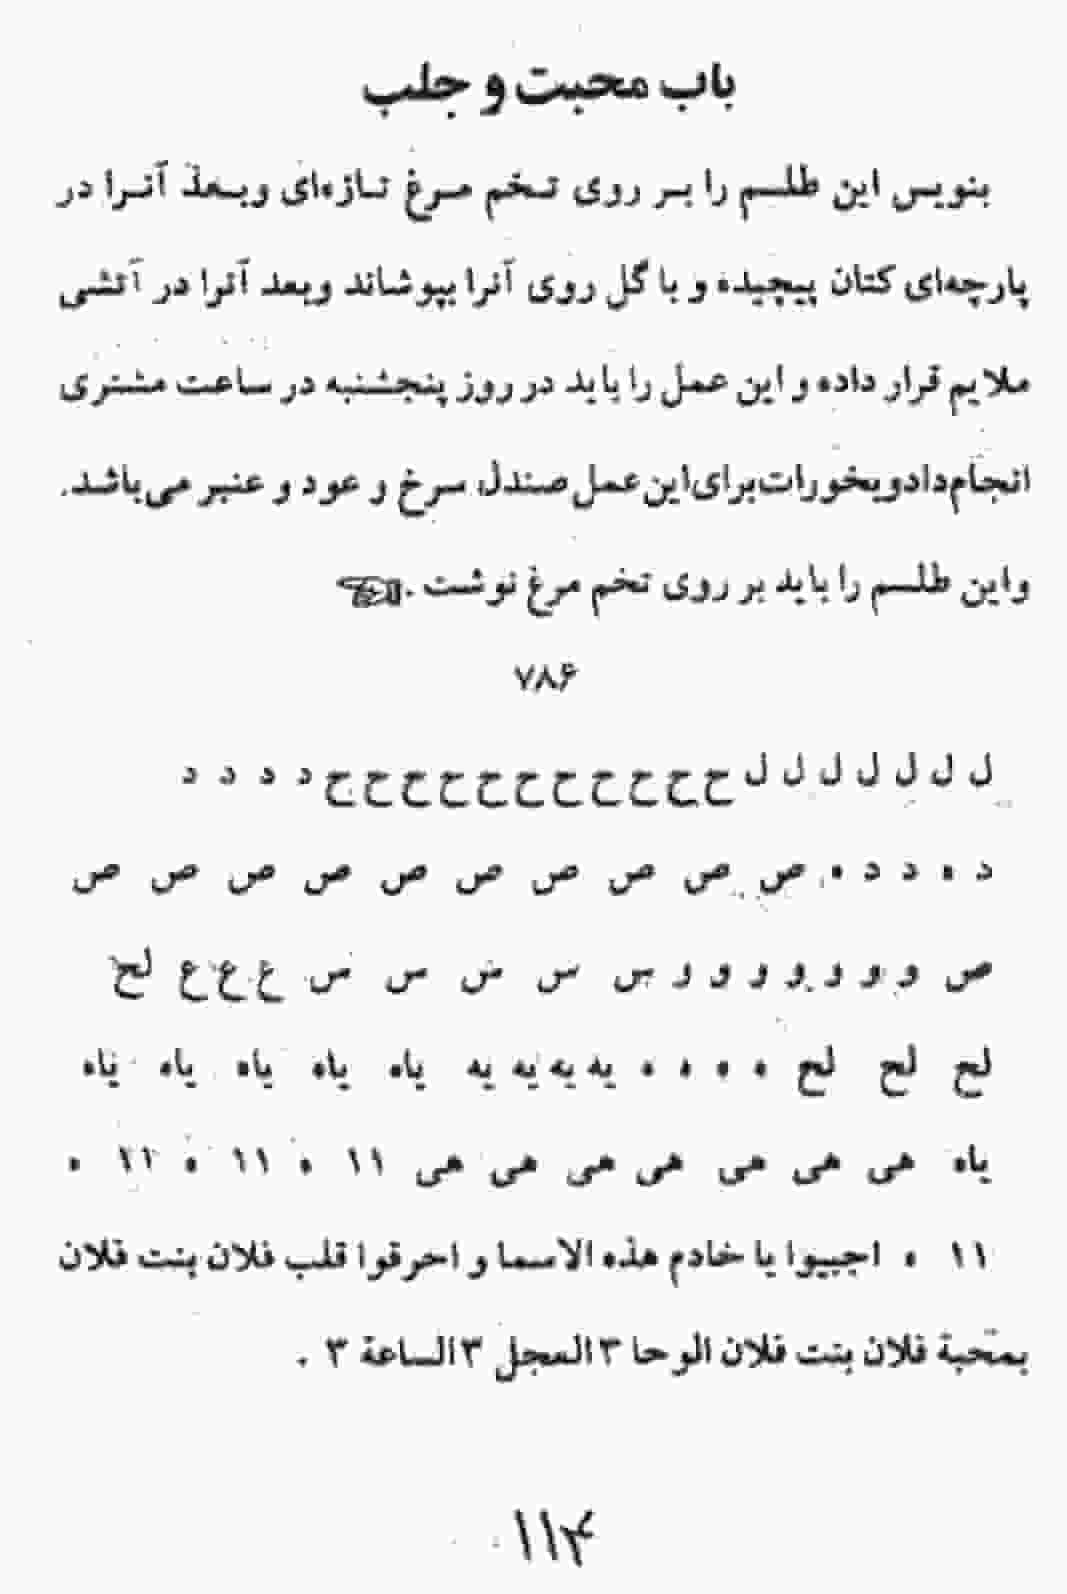 باب محبت و جلب
بنویس این طلسم را بر روی تخم مرغ تازه‌ای وبعد آنرا در
پارچه‌ای کتان پیچیده و با گل روی آنرا بپوشاند وبعد آنرا در آتشی
ملایم قرار داده و این عمل را باید در روز پنجشنبه در ساعت مشتری
انجام داد و بخورات برای این عمل صندل سرخ و عود و عنبر می‌باشد.
واین طلسم را باید بر روی تخم مرغ نوشت .
۷۸۶
ل ل ل ل ل ل ل ح ح ح ح ح ح ح ح ح ح ح د د د د
د ه د د ه ص ص ص ص ص ص ص ص ص ص
ص و و و و و و و س س س س س ع ع ع لح
لح لح لح ه ه ه ه یه یه یه یه یاه یاه یاه یاه یاه
یاه هی هی هی هی هی هی هی ۱۱ ه ۱۱ ه ۱۱ ه
۱۱ ه اجیبوا یا خادم هذه الاسما و احرقوا قلب فلان بنت فلان
بمحبة فلان بنت فلان الوحا ۳ العجل ۳ الساعة ۳ .
۱۱۴